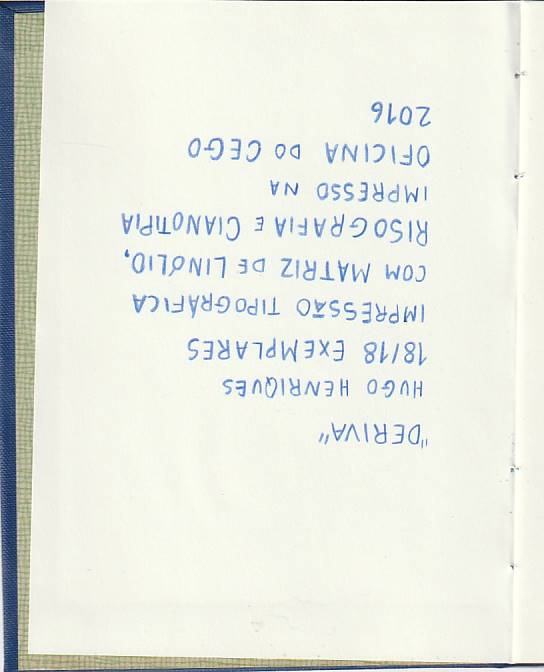 "DERIVA"
HUGO HENRIQUES
18/18 EXEMPLARES
IMPRESSÃO TIPOGRÁFICA
COM MATRIZ DE LINÓLIO,
RISOGRAFIA E CIANOTIPIA
IMPRESSO NA
OFICINA DO CEGO
2016